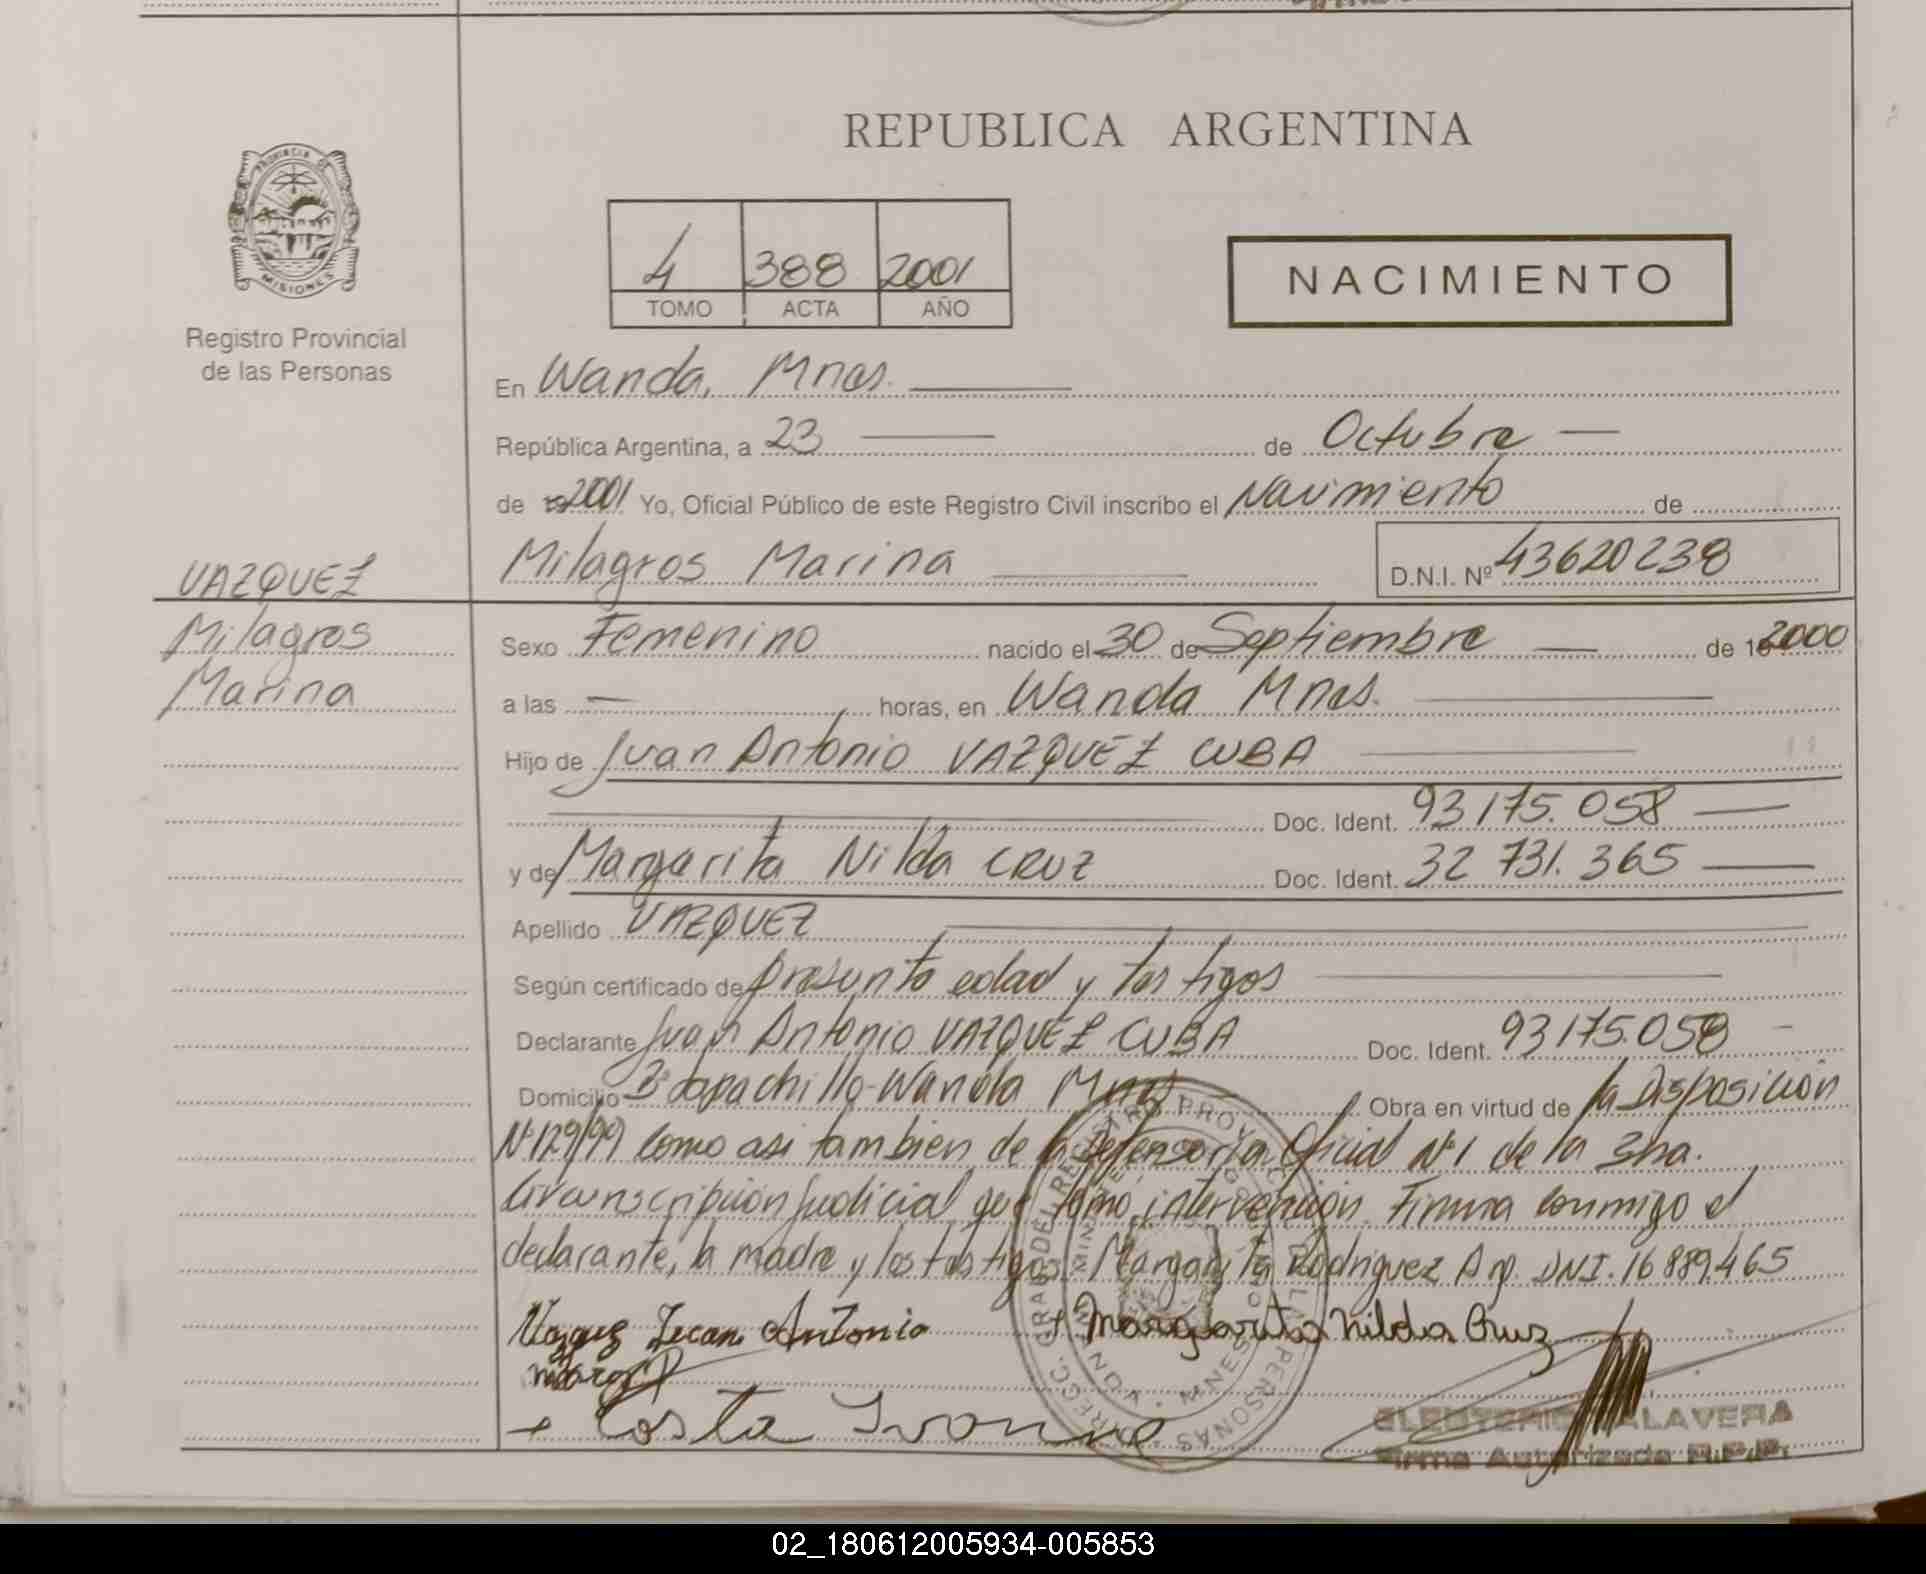 REPUBLICA ARGENTINA
PROVINCIA DE
MISIONES
Registro Provincial
de las Personas
4 388 2001
TOMO ACTA AÑO
NACIMIENTO
En Wanda, Mnes.
República Argentina, a 23 de Octubre
de 19 2001 Yo, Oficial Público de este Registro Civil inscribo el Nacimiento de
Milagros Marina D.N.I. Nº 43620238
VAZQUEZ
Milagros
Marina
Sexo Femenino nacido el 30 de Septiembre de 19 2000
a las horas, en Wanda Mnes.
Hijo de Juan Antonio VAZQUEZ CUBA
Doc. Ident. 93 175.058
y de Margarita Nilda CRUZ Doc. Ident. 32 731.365
Apellido VAZQUEZ
Según certificado de presunta edad y testigos
Declarante Juan Antonio VAZQUEZ CUBA Doc. Ident. 93175.058
Domicilio Wanda Mnes Obra en virtud de la Disposición
Nº 129/99 como asi tambien de la Defensoria Oficial Nº1 de la 3ra.
Circunscripción Judicial que tomó intervención. Firma conmigo el
declarante, la madre y los testigos Margarita Rodriguez Arg. DNI. 16 889.465
Juan Antonio + Marguarita nilda Cruz
+ Costa Ivonne
ELEUTERIO TALAVERA
Firma Autorizada R.P.P.
02_180612005934-005853